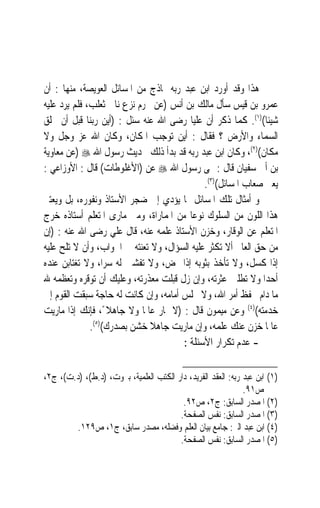 هذا وقد أورد ابن عبد ربه اذج من ا سائل العويصة، منها : أن
عمرو بن قيس سأل مالك بن أنس (عن رم نزع نا ثعلب، فلم يرد عليه
شيئا)(١). كما ذكر أن عليا رضى الله عنه سئل : (أين ربنا قبل أن لق
السماء والأرض ؟ فقال : أين توجب ا كان، وكان الله عز وجل ولا
مكان)(٢)، وكان ابن عبد ربه قد بدأ ذلك ديث رسول الله ﷺ (عن معاوية
بن أ سفيان قال : ى رسول الله ﷺ عن (الأغلوطات) قال : الأوزاعي :
يع صعاب ا سائل)(٣).
و أمثال تلك ا سائل ا يؤدي إ ضجر الأستاذ ونفوره، بل ويعت
هذا اللون من السلوك نوعا من ا ماراة، وم مارى ا تعلم أستاذه خرج
ا تعلم عن الوقار، وخزن الأستاذ علمه عنه، قال علي رضى الله عنه : (إن
من حق العا ألا تكثر عليه السؤال، ولا تعنته ا واب، وأن لا تلح عليه
إذا كسل، ولا تأخذ بثوبه إذا ض، ولا تفش له سرا، ولا تغتابن عنده
أحدا ولا تطل عثرته، وإن زل قبلت معذرته، وعليك أن توقره وتعظمه لله
ما دام فظ أمر الله، ولا لس أمامه، وإن كانت له حاجة سبقت القوم إ
خدمته)(٤) وعن ميمون قال : (لا ار عا ا ولا جاهلا ً، فإنك إذا ماريت
عا ا خزن عنك علمه، وإن ماريت جاهلا خشن بصدرك)(٥).
- عدم تكرار الأسئلة :
(١) ابن عبد ربه: العقد الفريد، دار الكتب العلمية، ب وت، (د.ط)، (د.ت)، ج٢،
ص٩١.
(٢) ا صدر السابق: ج٢، ص٩٢.
(٣) ا صدر السابق: نفس الصفحة.
(٤) ابن عبد ال : جامع بيان العلم وفضله، مصدر سابق، ج١، ص١٢٩.
(٥) ا صدر السابق: نفس الصفحة.